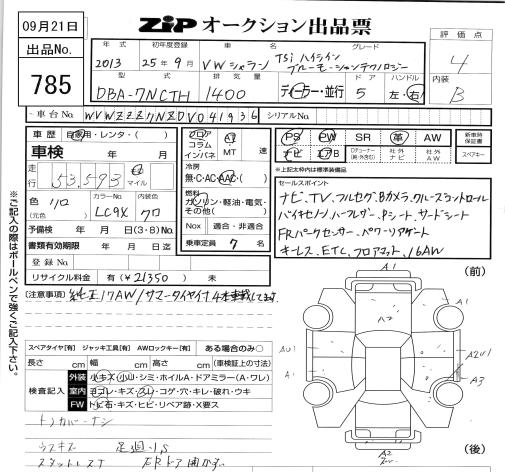 09月21日
ZiP オークション出品票
出品No.
785
評価点
4
内装
B
年式 初年度登録 車名 グレード
2013 25年9月 VWシャラン TSi ハイライン
ブルーモーションテクノロジー
型式 排気量 ドア ハンドル
DBA-7NCTH 1400 ディーラー・並行 5 左・右
車台No. WVWZZZ7NZDV041936 シリアルNo.
車歴 自家用・レンタ・( )
車検 年 月
走行 53,593 マイル
色 シロ (元色)
カラーNo. LC9X
内装色 クロ
予備検 年 月 日 (3・8)No.
書類有効期限 年 月 日
登録No.
リサイクル料金 有(¥21350) 未
フロア コラム インパネ
AT MT 速
冷房
無・C・AC・AAC・( )
燃料
ガソリン・軽油・電気・その他( )
Nox 適合・非適合
乗車定員 7 名
PS PW SR 革 AW
ナビ エアB
TVチューナー(純・外含む) 社外ナビ 社外AW
新車時保証書
スペアキー
※上記太枠内は標準装備品
セールスポイント
ナビ、TV、フルセグ、Bカメラ、クルーズコントロール
バイキセノン、ハーフレザー、Pシート、サードシート
FRパークセンサー、パワーリアゲート
キーレス、ETC、フロアマット、16AW
[注意事項] 純正17AW/サマータイヤ付4本車載してます。
※ご記入の際はボールペンで強くご記入下さい。
スペアタイヤ[有] ジャッキ工具[有] AWロックキー[有] ある場合のみ○
長さ cm 幅 cm 高さ cm (車検証上の寸法)
検査記入
外装 小キズ・小凹・シミ・ホイルA・ドアミラー(A・ワレ)
室内 ヨゴレ・キズ・スレ・コゲ・穴・キレ・破れ・ウキ
FW トビ石・キズ・ヒビ・リペア跡・X要ス
トノカバーナシ
ウスキズ
スタットレス
(前)
A1
A1
A2
AU1
A2U1
A1
A3
A2
(後)